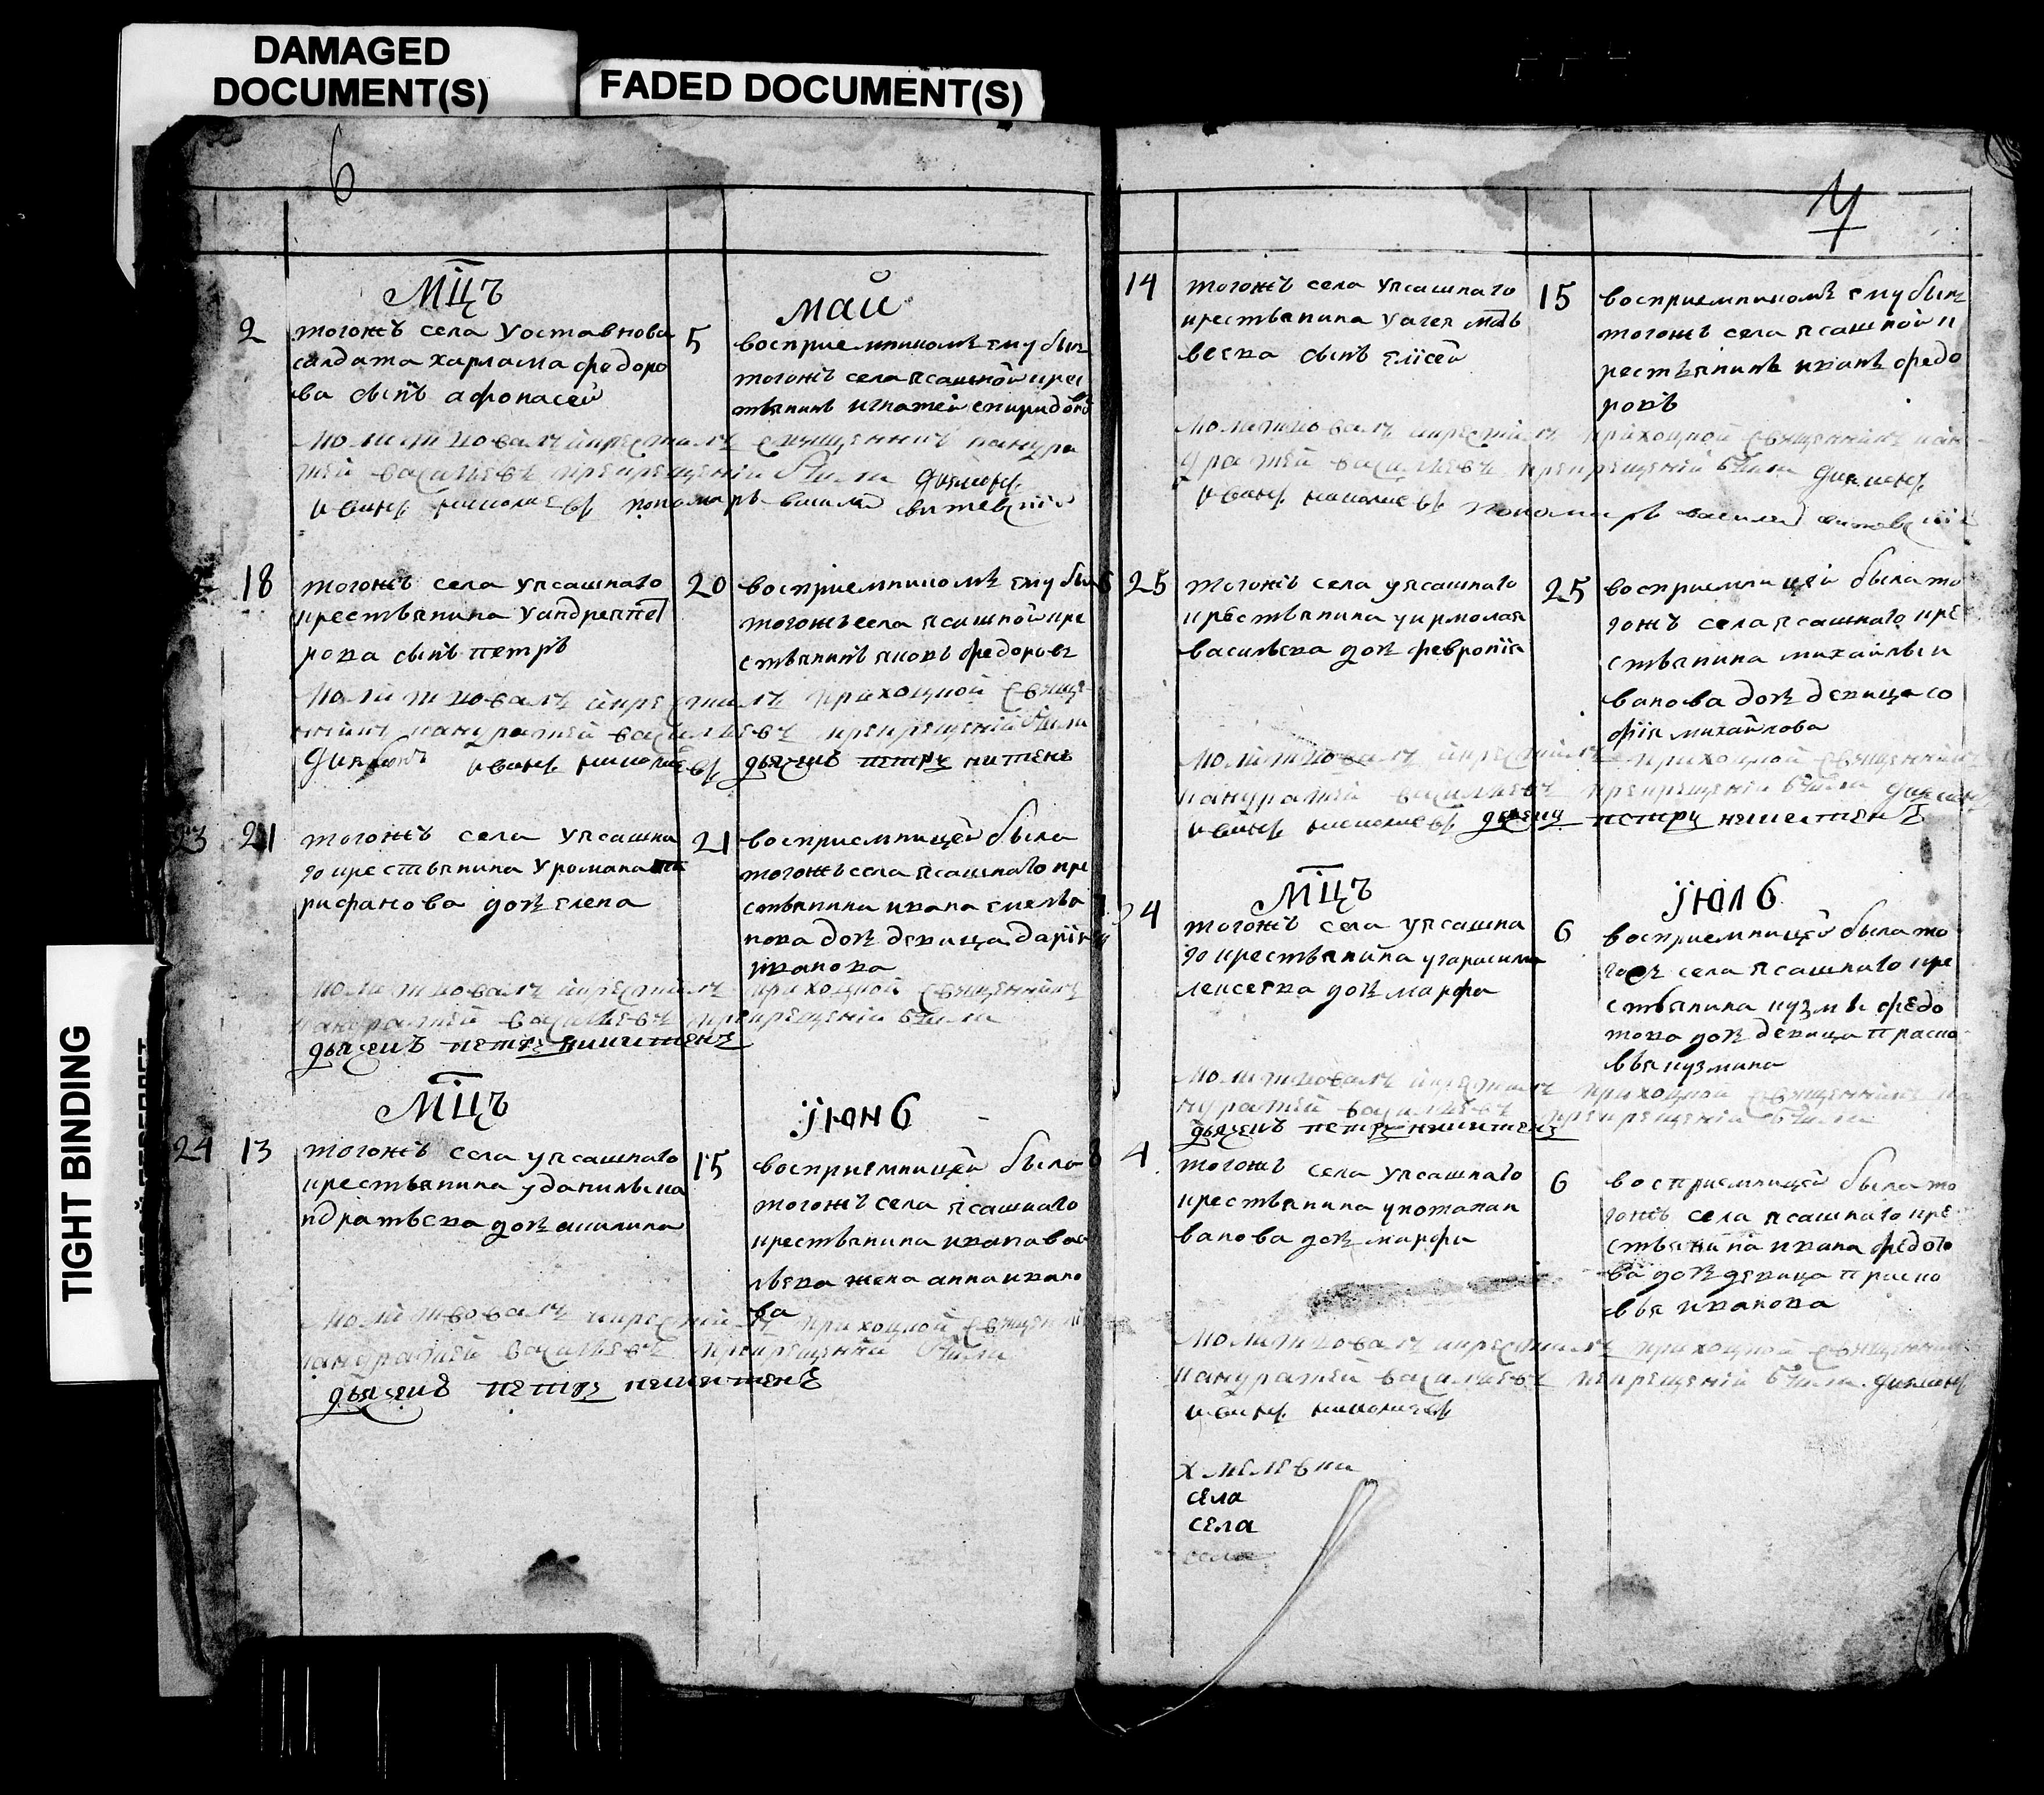 DAMAGED
DOCUMENT(S)
FADED DOCUMENT(S)
TIGHT BINDING
6
МЦЪ
май
2
тогожъ села Уоставнова
салдата харлама федоро
ва сынъ афонасей
5
восприемникомъ ему былъ
тогожъ села ясашной крес
тьянинъ игнатей спиридонов
молитвовалъ и крестилъ священникъ панкра
тей васильевъ при крещении были дьяконъ
иванъ николаевъ пономарь василей
18
тогожъ села уясашнаго
крестьянина Уандрея пет
рова сынъ петръ
20
восприемникомъ ему былъ
тогожъ села ясашной кре
стьянинъ яковъ федоровъ
молитвовалъ и крестилъ приходной свяще
нникъ панкратей васильевъ при крещении были
дьяконъ иванъ николаевъ дьячекъ петръ никитенъ
23
21
тогожъ села Уясашна
го крестьянина Уромана
рифанова дочь елена
21
восприемницей была
тогожъ села ясашнаго кре
стьянина ивана емелья
нова дочь девица дарiя
иванова
молитвовалъ и крестилъ приходной священникъ
панкратей васильевъ при крещении были
дьячекъ петръ никитенъ
МЦЪ
iюнь
24
13
тогожъ села уясашнаго
крестьянина уданилы ко
ндратьева дочь акилина
15
восприемницей была
тогожъ села ясашнаго
крестьянина ивана васи
льева жена анна ивано
ва
молитвовалъ и крестилъ приходной священни
панкратей васильевъ при крещении были
дьячекъ петръ никитенъ
7
14
тогожъ села уясашнаго
крестьянина Уагея мат
веева сынъ елiсей
15
восприемникомъ ему былъ
тогожъ села ясашной к
рестьянинъ иванъ федо
ровъ
молитвовалъ и крестилъ приходной священникъ пан
кратей васильевъ при крещении были дьяконъ
иванъ николаевъ пономарь василей
25
тогожъ села уясашнаго
крестьянина уирмолая
васильева дочь феврониiя
25
восприемницей была то
гожъ села ясашнаго кре
стьянина михайлы и
ванова дочь девица со
фiя михайлова
молитвовалъ и крестилъ приходной священникъ
панкратей васильевъ при крещении были дьяконъ
иванъ николаевъ дьячекъ петръ никитенъ
МЦЪ
iюль
4
тогожъ села уясашна
го крестьянина угарасима
лексеева дочь марфа
6
восприемницей была то
гожъ села ясашнаго кре
стьянина кузмы федо
това дочь девица праско
вья кузмина
молитвовалъ и крестилъ приходной священникъ па
нкратей васильевъ при крещении были
дьячекъ петръ никитенъ
4
тогожъ села уясашнаго
крестьянина употапа и
ванова дочь марфа
6
восприемницей была то
гожъ села ясашнаго кре
стьянина ивана федото
ва дочь девица праско
вья иванова
молитвовалъ и крестилъ приходной священникъ
панкратей васильевъ при крещении были дьяконъ
иванъ николаевъ
хмелевки
села
села
села